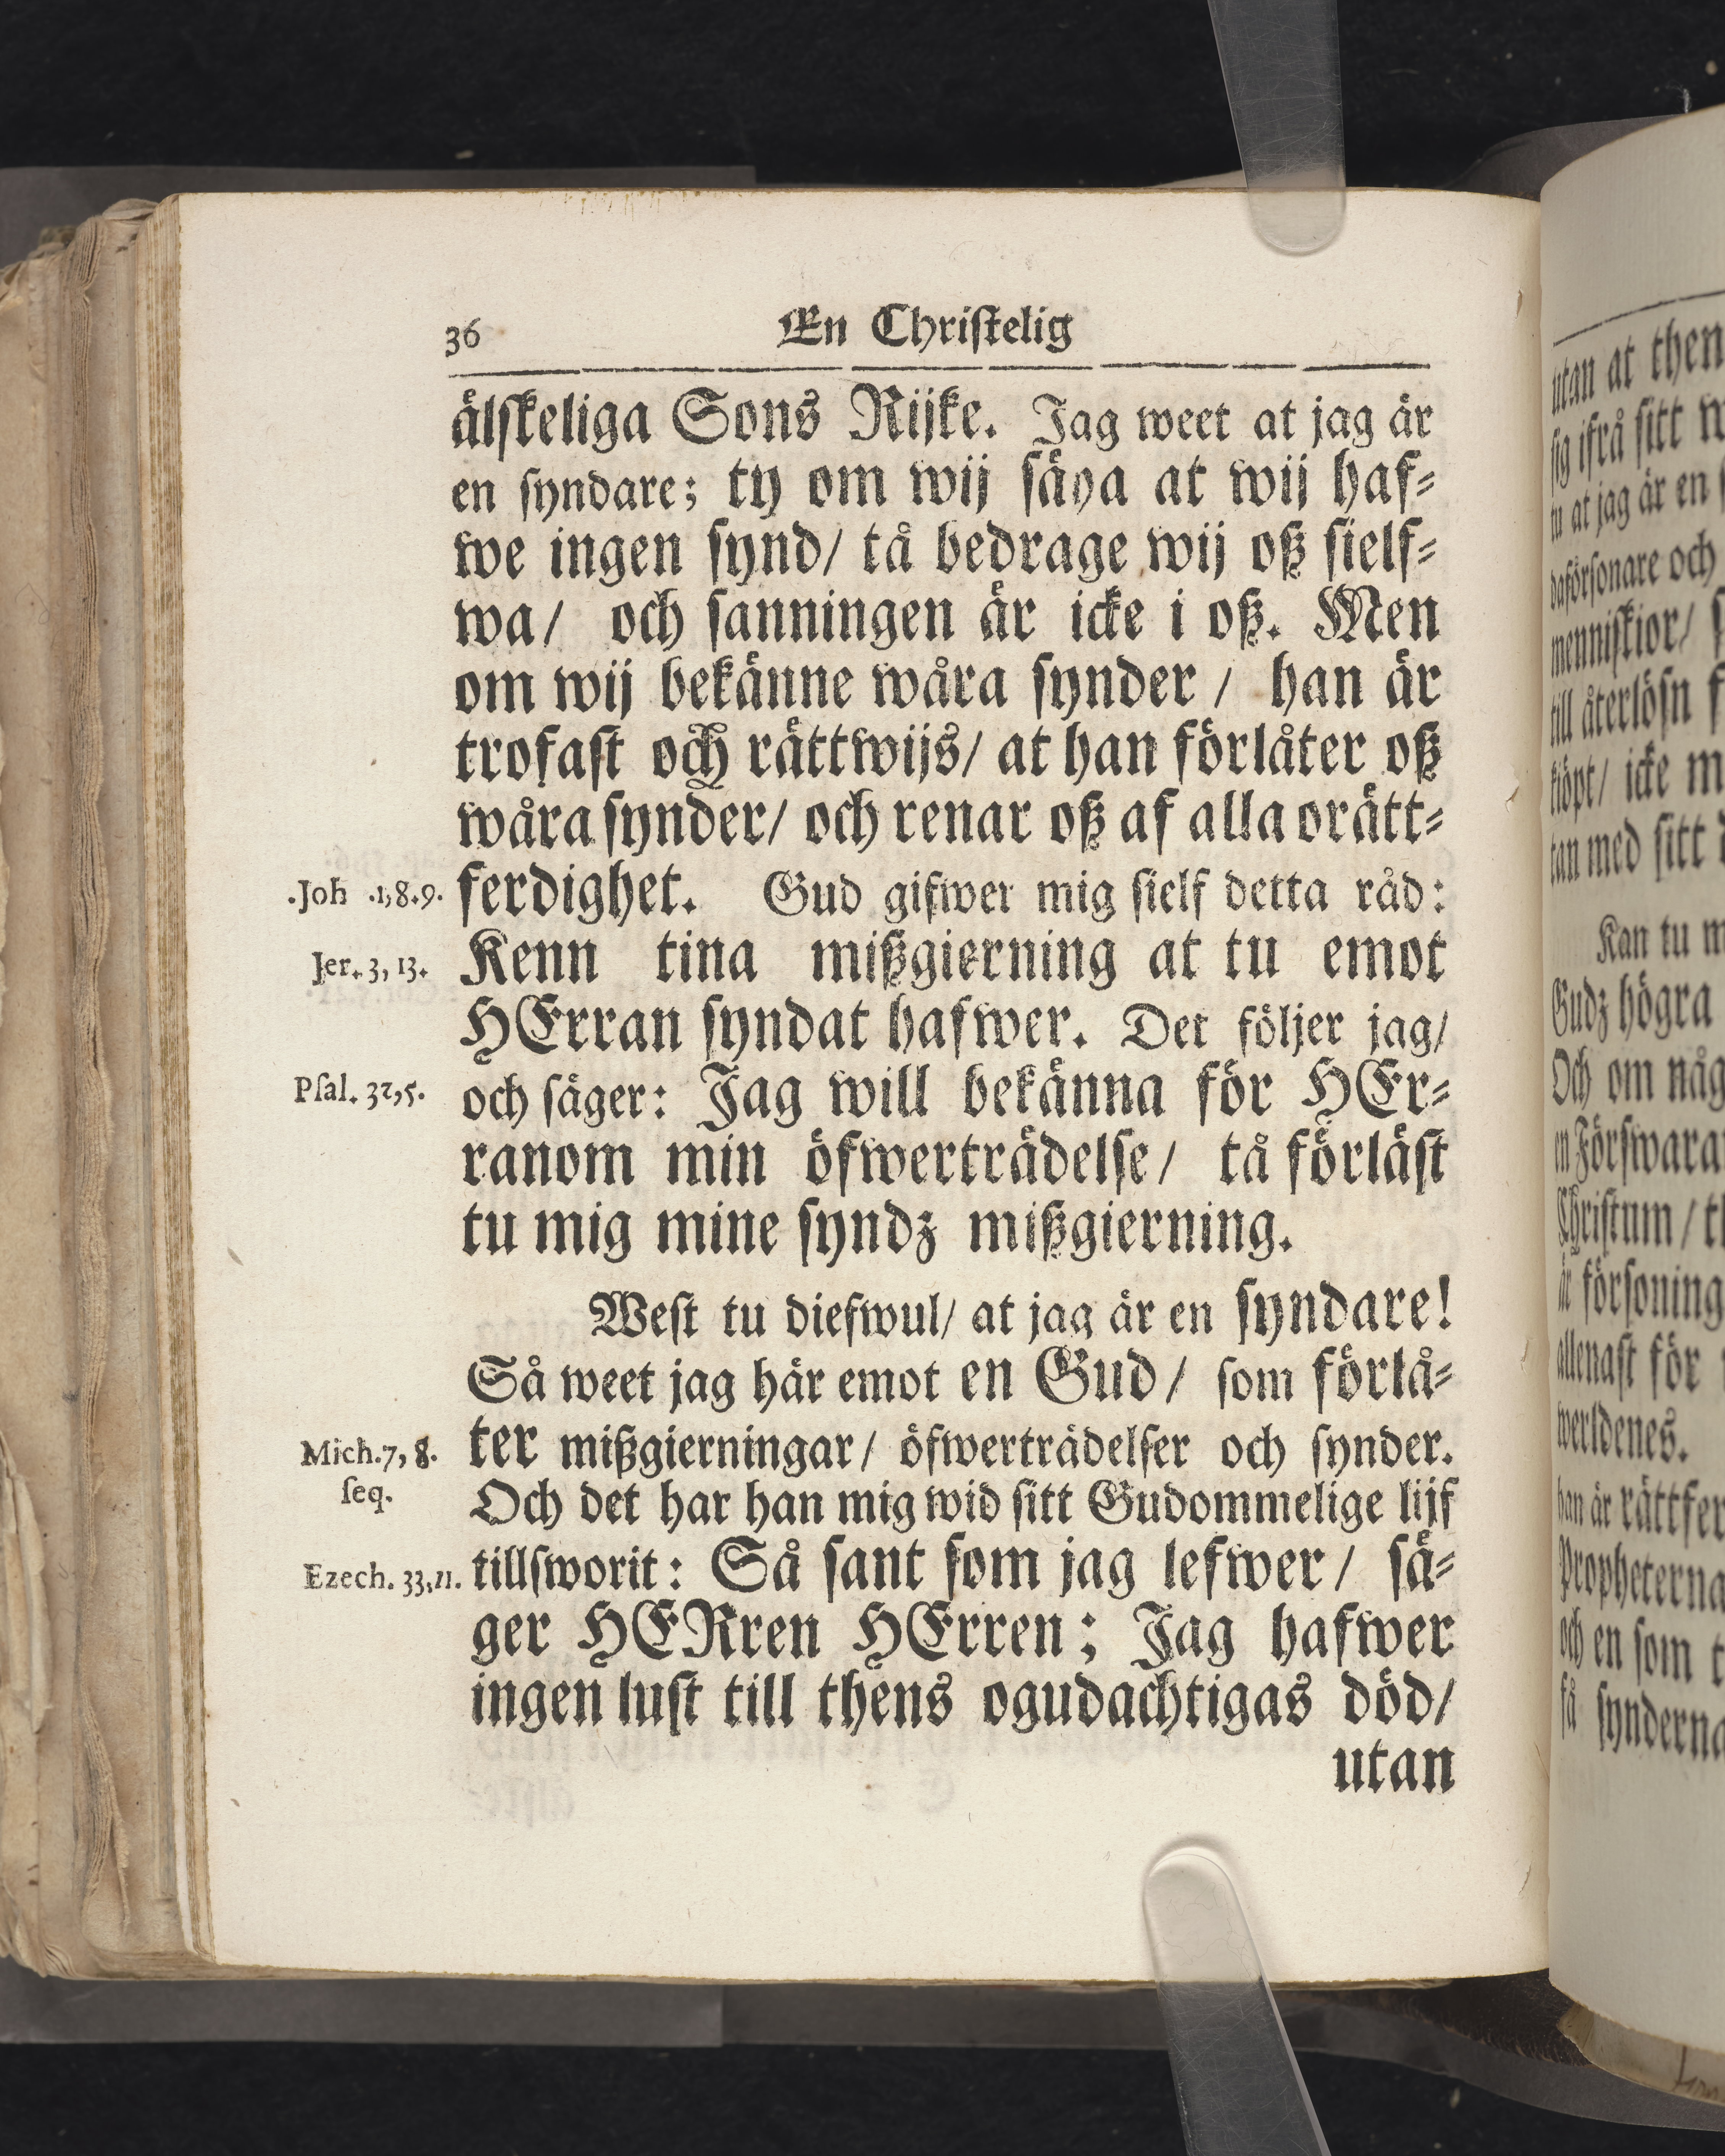 36 En Christelig
älskeliga Sons Rijke. Jag weet at jag är
en syndare; ty om wij säya at wij haf-
we ingen synd/ tå bedrage wij oß sielf-
wa/ och sanningen är icke i oß. Men
om wij bekänne wåra synder / han är
trofast och rättwijs/ at han förlåter oß
wåra synder/ och renar oß af alla orätt-
.Joh .1,8.9. ferdighet. Gud gifwer mig sielf detta råd:
Jer. 3, 13. Kenn tina mißgierning at tu emot
HErran syndat hafwer. Det följer jag/
Psal. 32,5. och säger: Jag will bekänna för HEr-
ranom min öfwerträdelse/ tå förläst
tu mig mine syndz mißgierning.
West tu diefwul/ at jag är en syndare!
Så weet jag här emot en Gud/ som förlå-
Mich.7, 8. ter mißgierningar/ öfwerträdelser och synder.
seq. Och det har han mig wid sitt Gudommelige lijf
Ezech. 33,11. tillsworit: Så sant som jag lefwer/ sä-
ger HERren HErren; Jag hafwer
ingen lust till thens ogudachtigas död/
utan
utan at then
sig ifrå sitt
tu at jag är en
daförsonare och
menniskior/
till återlösn
köpt/ icke
tan med sitt
Kan tu
Gudz högra
Och om någ
en Förswara
Christum /
är försoning
allenast för
werldenes.
han är rättfer
Propheterna
och en som
få synderna